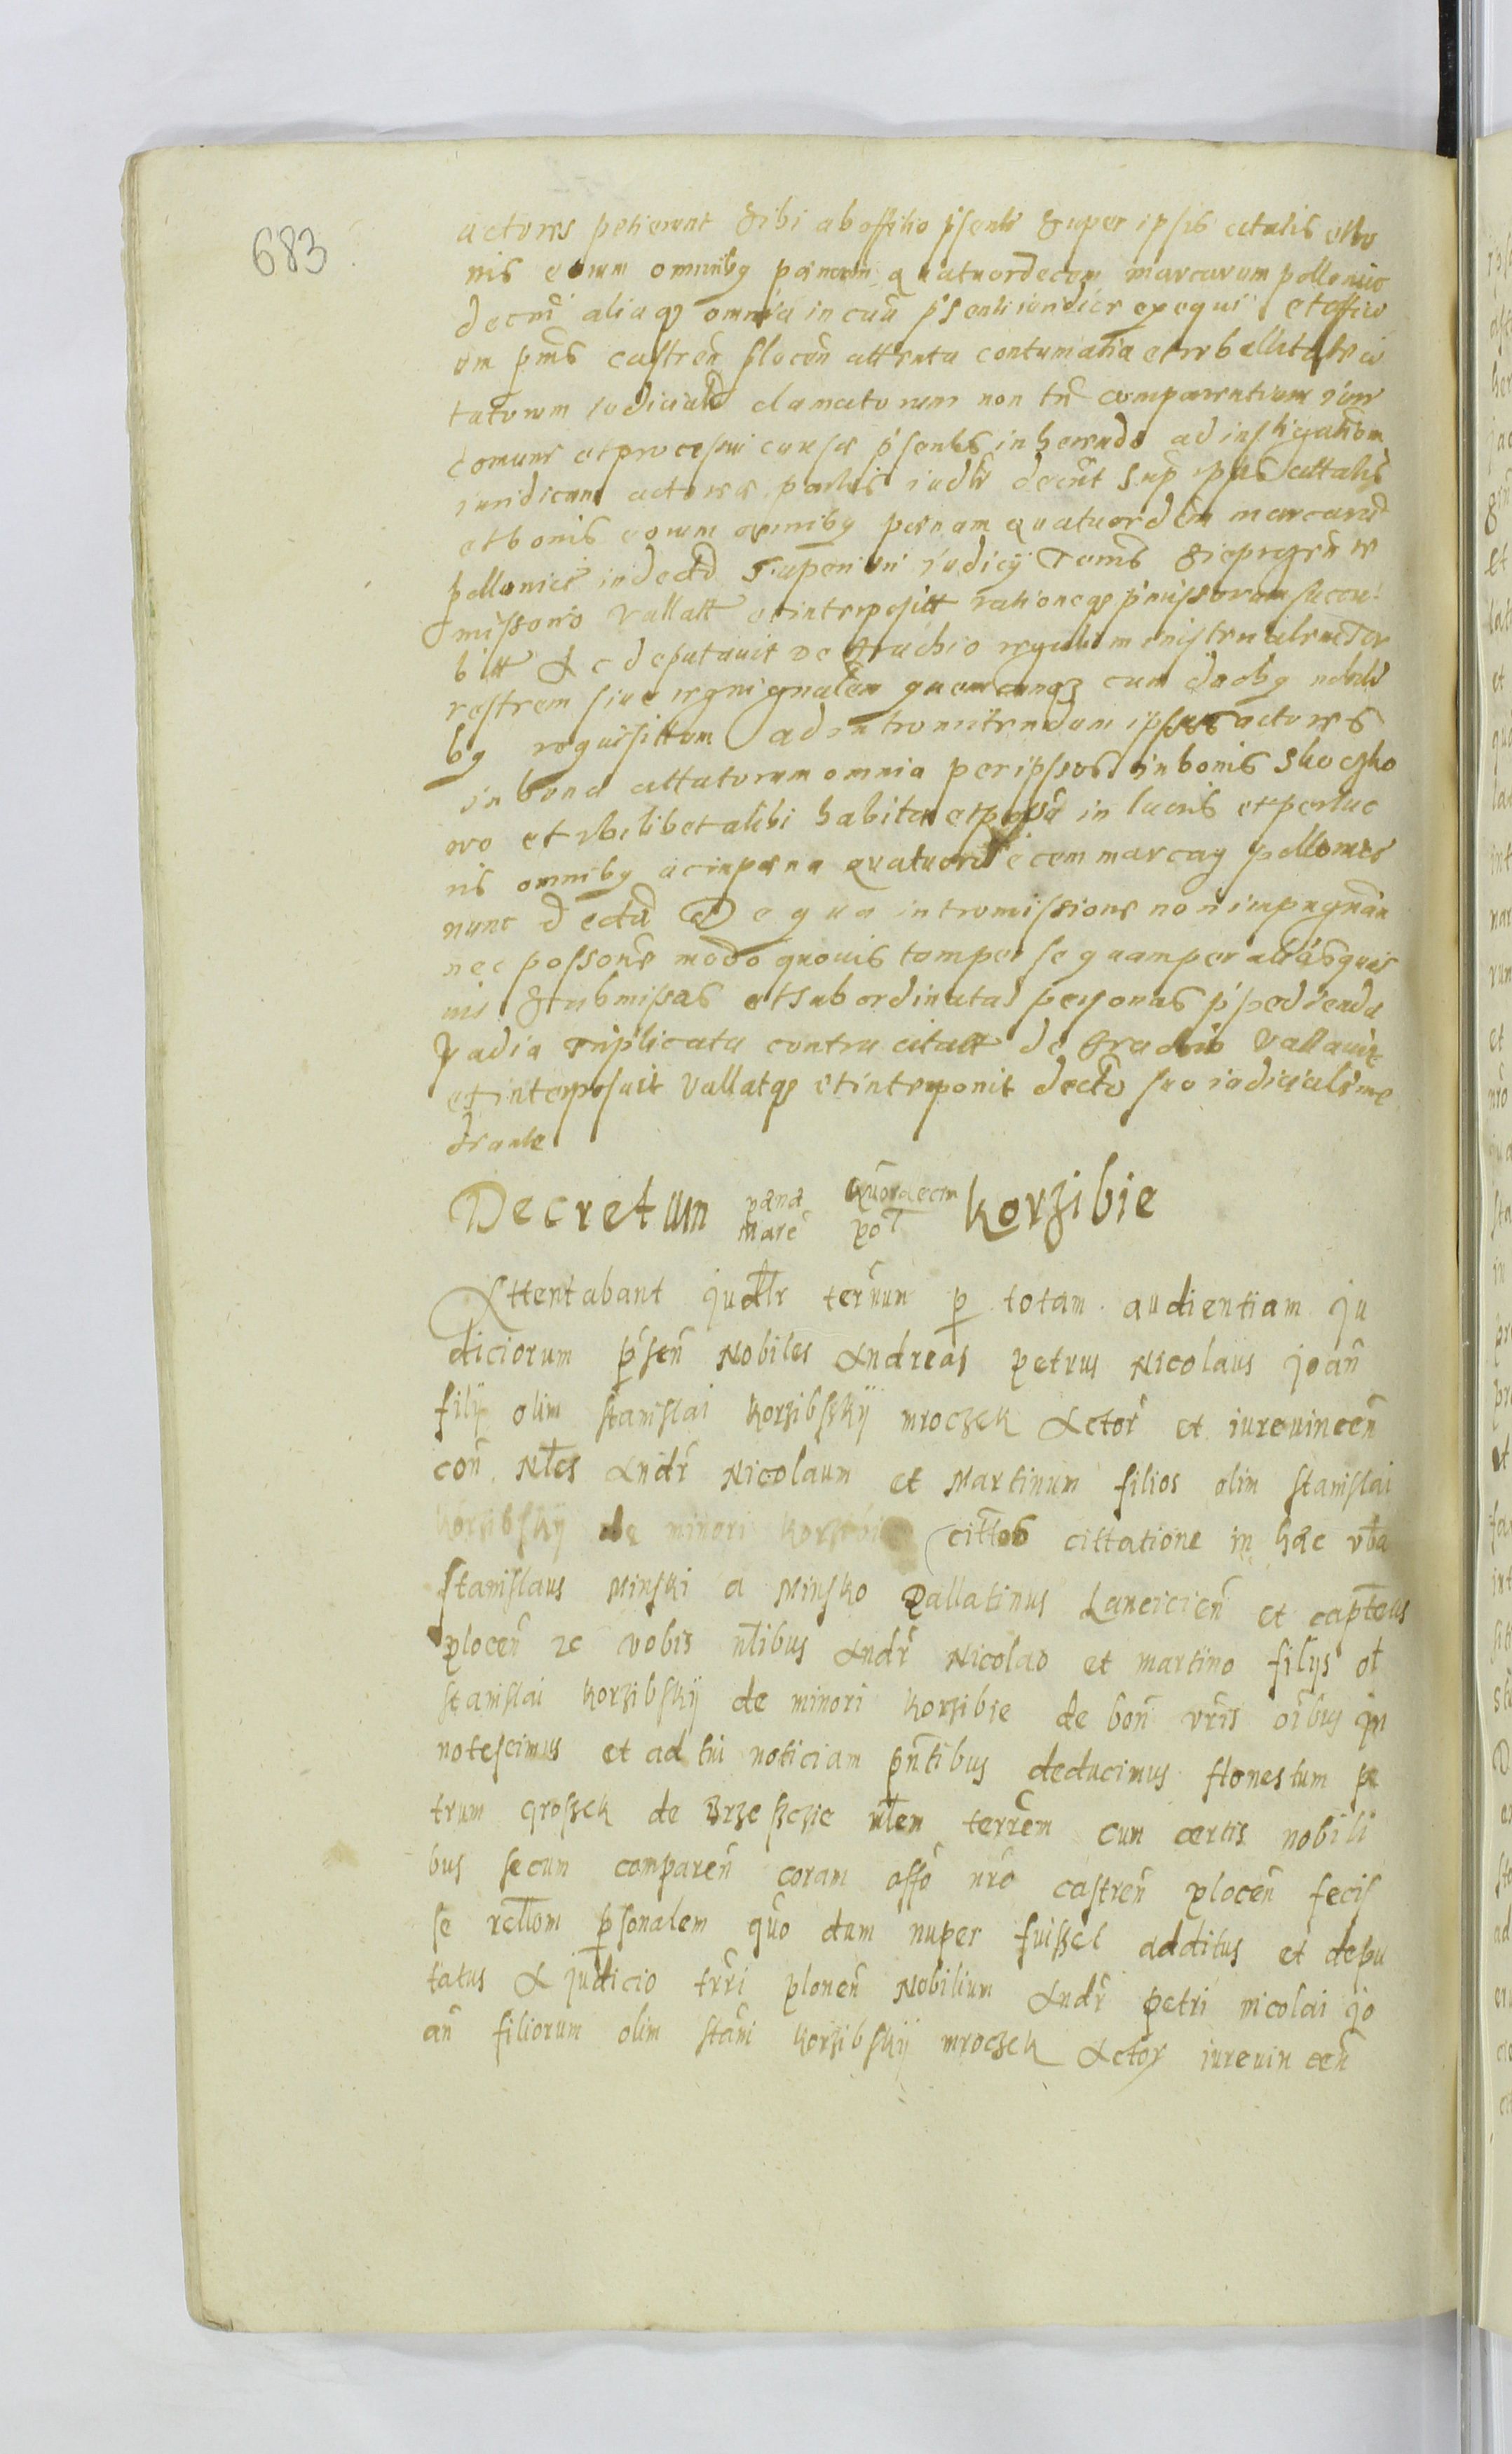 683
actores petierunt sibi ab officio pñsenti super ipsis citatis et bo
nis eorum omnibus pænam quatuordecem marcarum pollonic
decrni aliaqz omnia in cau pñsenti iuridice exequi et offici
um pms castren plocen attenta contumatia et rebellitate ci
tatorum iudicialr clamatorum non tñ comparentium iure
comune et processui causæ pñsentis inherendo ad instigationem
iuridicam actoreæ partis iudlr decrnt sup ipsis cittatis
et bonis eorum omnibus pænam quatuordecim marcarum
pollonice in dectd
missoris vallatt et interpositt rationeqz pmissorum succu
bitt &c deputavit de stuchio regali ministerialem ter
restrem sive regni gnalem quemcunqz cum duobus nobili
bus requisittum ad intromittendum ipsos actores
in bona cittatorum omnia per ipsos in bonis
ovo et ubilibet alibi habita et in lucris et perluc
ris omnibus ac in pæna quatuordecem marcarum pollonice
nunc dectd De qua intromissione non impugnan
nec possone modo quovis tam per se quam per alias quas
vis submissas et subordinatas personas pñpedienda
vadia triplicata contra citatt de vallavit
et interposuit vallatqz et interponit decto suo iudiciali me
diante
Decretum pænæ quordecim Marc pol Korzibie
Attentabant judlr termun p totam audientiam ju
diciorum pñsen Nobiles Andreas petrus Nicolaus joan
filij olim stanislai Korzibskij mroczek Actor et iurevincen
con Nles Andr Nicolaum et Martinum filios olim stanislai
Korzibskij de minori Korzibie cittos cittatione in hæc vba
Stanislaus Minski a Minsko Pallatinus Lancicien et capteus
plocen &c vobis nlibus Andr Nicolao et martino filijs ol
stanislai Korzibskij de minori Korzibie de bon vris oibus in
notescimus et ad tui noticiam pntibus deducimus Honestum pe
trum grossek de Brzesczie mlem terrem cum certis nobili
bus secum comparen coram offo nro castren plocen fecis
se rellom psonalem quo dum nuper fuisset additus et depu
tatus A judicio trri plonen Nobilium Andr petri nicolai jo
an filiorum olim stani Korzibskij mroczek Actor iurevin cen